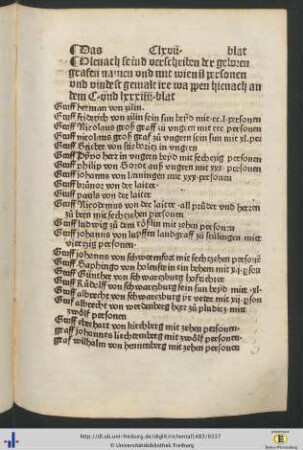 Das Clxvii blat
Hienach seind verschriben der geloren
grafen namen vnd mit wieuil personen
vnd vindest gemalt ire wappen hienach an
dem C vnd lxxxiiii blat
Graff herman von zilin.
Graff friderich von zilin sein sun beyd mit personen
Graff Nicolaus groß graff zů vngren mit personen
Graff nicolaus groß graff zů vngren sein sun mit xl. per
Graff von in vngren
Graff herr in vngren beyd mit sechczig personen
Graff philip von auß vngren mit xxx personen
Graff johanns von Leiningen mit personen
Graff von der laiter
Graff paulß von der laiter
Graff Nicodemus von der laiter all prüder vnd herren
zů bern mit sechczehen personen
Graff ludwig zů mit zehen personen
Graff johanns von lupffen landgraff zů stülingen mitt
viertzig personen
Graff johanns von mit sechczehen personen
Graff von holenstein ein behem mit personen
Graff Günther von schwarczburg hofrichter
Graff Růdolff von schwarczburg sein sun beyd mitt xl.
Graff albrecht von schwarczburg ir veter mit xii person
Graff albrecht von werdenberg herr zů pludicz mitt
zwölff personen
Graff eberhart von kirchberg mit zehen personen.
graff johannes liechtenberg mit zwölff personen.
graf wilhalm von hennenberg mit zehen personen
http://dl.ub.uni-freiburg.de/diglit/richental1483/0337
© Universitätsbibliothek Freiburg